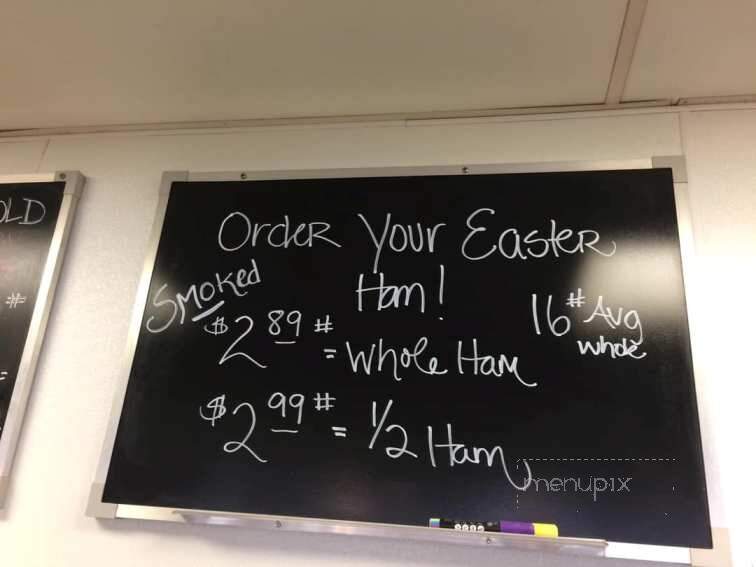 OLD
#
=
=
Order Your Easter
Ham!
Smoked
$2 89 # = Whole Ham
16 # Avg
whole
$2 99 # = 1/2 Ham
menupix